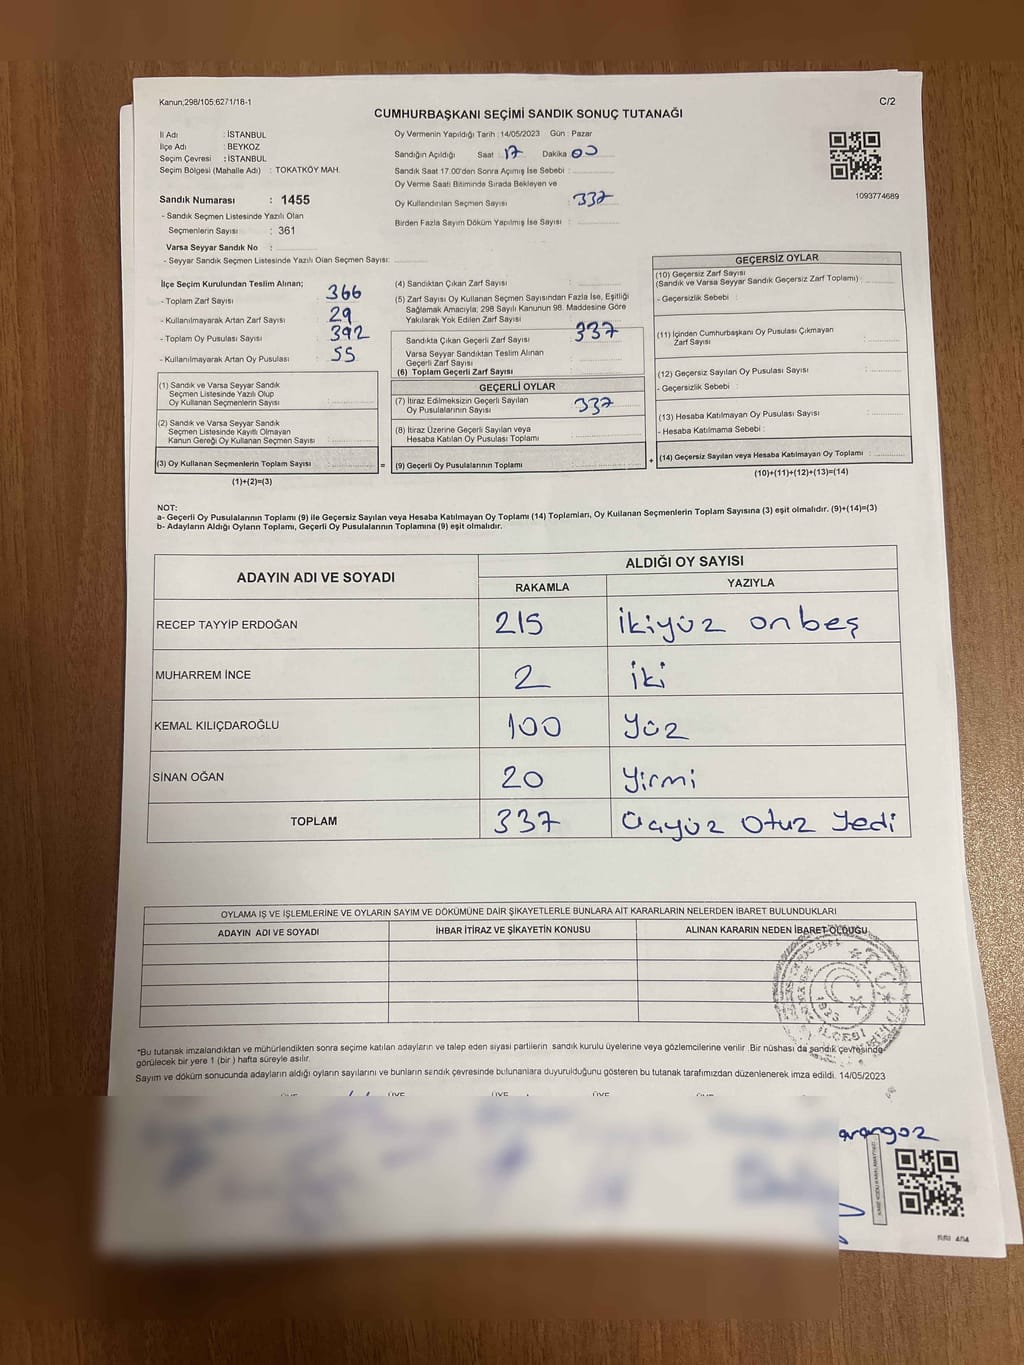 Kanun;298/105;6271/18-1
C/2
CUMHURBAŞKANI SEÇİMİ SANDIK SONUÇ TUTANAĞI
İl Adı : İSTANBUL
İlçe Adı : BEYKOZ
Seçim Çevresi : İSTANBUL
Seçim Bölgesi (Mahalle Adı) : TOKATKÖY MAH.
Sandık Numarası : 1455
- Sandık Seçmen Listesinde Yazılı Olan
Seçmenlerin Sayısı : 361
Varsa Seyyar Sandık No :
- Seyyar Sandık Seçmen Listesinde Yazılı Olan Seçmen Sayısı:
Oy Vermenin Yapıldığı Tarih : 14/05/2023 Gün : Pazar
Sandığın Açıldığı Saat : 17 Dakika 00
Sandık Saat 17.00'den Sonra Açımış İse Sebebi :
Oy Verme Saati Bitiminde Sırada Bekleyen ve
Oy Kullandırılan Seçmen Sayısı : 337
Birden Fazla Sayım Döküm Yapılmış İse Sayısı :
1093774689
İlçe Seçim Kurulundan Teslim Alınan;
- Toplam Zarf Sayısı : 366
- Kullanılmayarak Artan Zarf Sayısı : 29
- Toplam Oy Pusulası Sayısı : 392
- Kullanılmayarak Artan Oy Pusulası : 55
(1) Sandık ve Varsa Seyyar Sandık
Seçmen Listesinde Yazılı Olup
Oy Kullanan Seçmenlerin Sayısı :
(2) Sandık ve Varsa Seyyar Sandık
Seçmen Listesinde Kayıtlı Olmayan
Kanun Gereği Oy Kullanan Seçmen Sayısı :
(3) Oy Kullanan Seçmenlerin Toplam Sayısı :
(1)+(2)=(3)
=
(4) Sandıktan Çıkan Zarf Sayısı :
(5) Zarf Sayısı Oy Kullanan Seçmen Sayısından Fazla İse, Eşitliği
Sağlamak Amacıyla; 298 Sayılı Kanunun 98. Maddesine Göre
Yakılarak Yok Edilen Zarf Sayısı :
Sandıkta Çıkan Geçerli Zarf Sayısı : 337
Varsa Seyyar Sandıktan Teslim Alınan
Geçerli Zarf Sayısı :
(6) Toplam Geçerli Zarf Sayısı :
GEÇERLİ OYLAR
(7) İtiraz Edilmeksizin Geçerli Sayılan
Oy Pusulalarının Sayısı : 337
(8) İtiraz Üzerine Geçerli Sayılan veya
Hesaba Katılan Oy Pusulası Toplamı :
(9) Geçerli Oy Pusulalarının Toplamı :
+
GEÇERSİZ OYLAR
(10) Geçersiz Zarf Sayısı
(Sandık ve Varsa Seyyar Sandık Geçersiz Zarf Toplamı) :
- Geçersizlik Sebebi :
(11) İçinden Cumhurbaşkanı Oy Pusulası Çıkmayan
Zarf Sayısı :
(12) Geçersiz Sayılan Oy Pusulası Sayısı :
- Geçersizlik Sebebi :
(13) Hesaba Katılmayan Oy Pusulası Sayısı :
- Hesaba Katılmama Sebebi :
(14) Geçersiz Sayılan veya Hesaba Katılmayan Oy Toplamı :
(10)+(11)+(12)+(13)=(14)
NOT:
a- Geçerli Oy Pusulalarının Toplamı (9) ile Geçersiz Sayılan veya Hesaba Katılmayan Oy Toplamı (14) Toplamları, Oy Kullanan Seçmenlerin Toplam Sayısına (3) eşit olmalıdır. (9)+(14)=(3)
b- Adayların Aldığı Oyların Toplamı, Geçerli Oy Pusulalarının Toplamına (9) eşit olmalıdır.
ADAYIN ADI VE SOYADI
ALDIĞI OY SAYISI
RAKAMLA YAZIYLA
RECEP TAYYİP ERDOĞAN 215 İkiyüz onbeş
MUHARREM İNCE 2 İki
KEMAL KILIÇDAROĞLU 100 Yüz
SİNAN OĞAN 20 Yirmi
TOPLAM 337 Üçyüz Otuz Yedi
OYLAMA İŞ VE İŞLEMLERİNE VE OYLARIN SAYIM VE DÖKÜMÜNE DAİR ŞİKAYETLERLE BUNLARA AİT KARARLARIN NELERDEN İBARET BULUNDUKLARI
ADAYIN ADI VE SOYADI İHBAR İTİRAZ VE ŞİKAYETİN KONUSU ALINAN KARARIN NEDEN İBARET OLDUĞU
*Bu tutanak imzalandıktan ve mühürlendikten sonra seçime katılan adayların ve talep eden siyasi partilerin sandık kurulu üyelerine veya gözlemcilerine verilir .Bir nüshası da sandık çevresinde
görülecek bir yere 1 (bir ) hafta süreyle asılır.
Sayım ve döküm sonucunda adayların aldığı oyların sayılarını ve bunların sandık çevresinde bulunanlara duyurulduğunu gösteren bu tutanak tarafımızdan düzenlenerek imza edildi. 14/05/2023